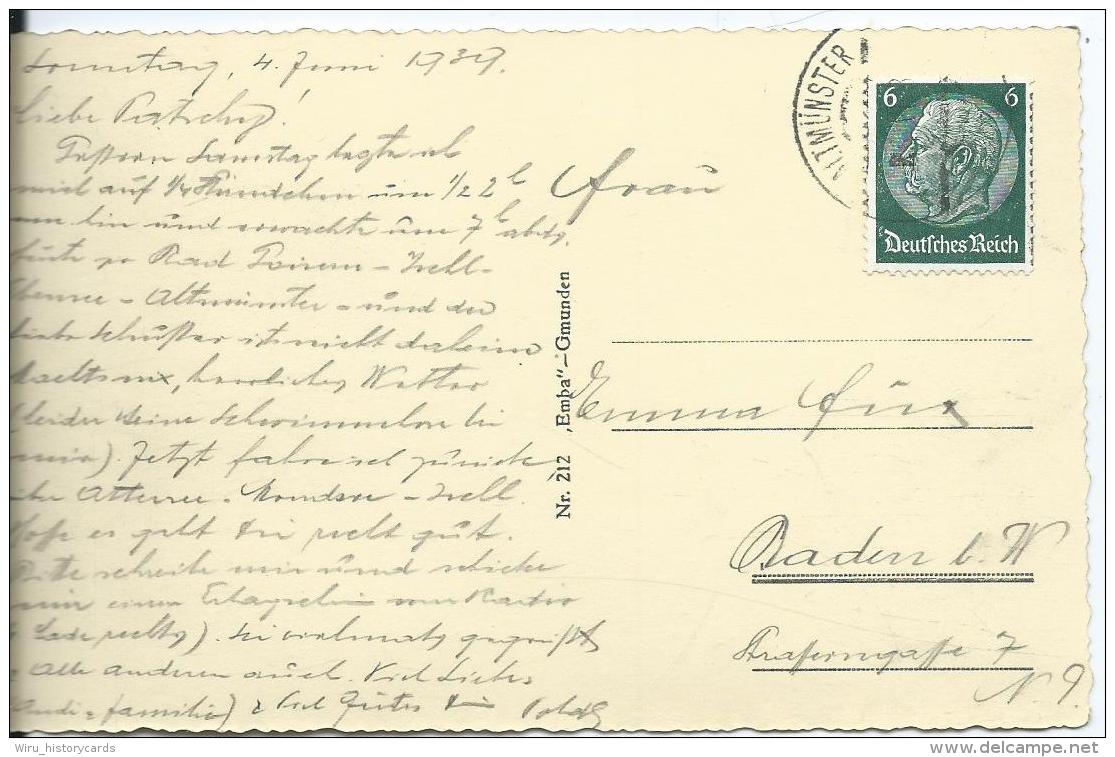 Sonntag, 4. Juni 1939.
Liebe
Gestern Samstag legte ich
mich auf 1/4 Stündchen um 1/2 2h
hin und erwachte um 7h abds.
Heute p. Bad - Ischl -
Ebensee - Altmünster - und der
liebe Schuster ist nicht daheim
Macht nix, herrliches Wetter
(leider keine Schwimmhose bei
mir). Jetzt fahre ich zurück
über Attersee - Mondsee - Ischl.
Hoffe es geht Dir recht gut.
Bitte schreibe mir und schicke
mir einen Erlagschein vom Radio
Lade rechts). Sei vielmals gegrüßt
Alle anderen auch. Viel Liebes
familie) & viel Gutes Dein Poldi
Nr. 212 „Emba"–Gmunden
ALTMÜNSTER
6 6
Deutsches Reich
Frau
Emma
Baden b. W
7
N. 9.
Wiru_historycards
www.delcampe.net